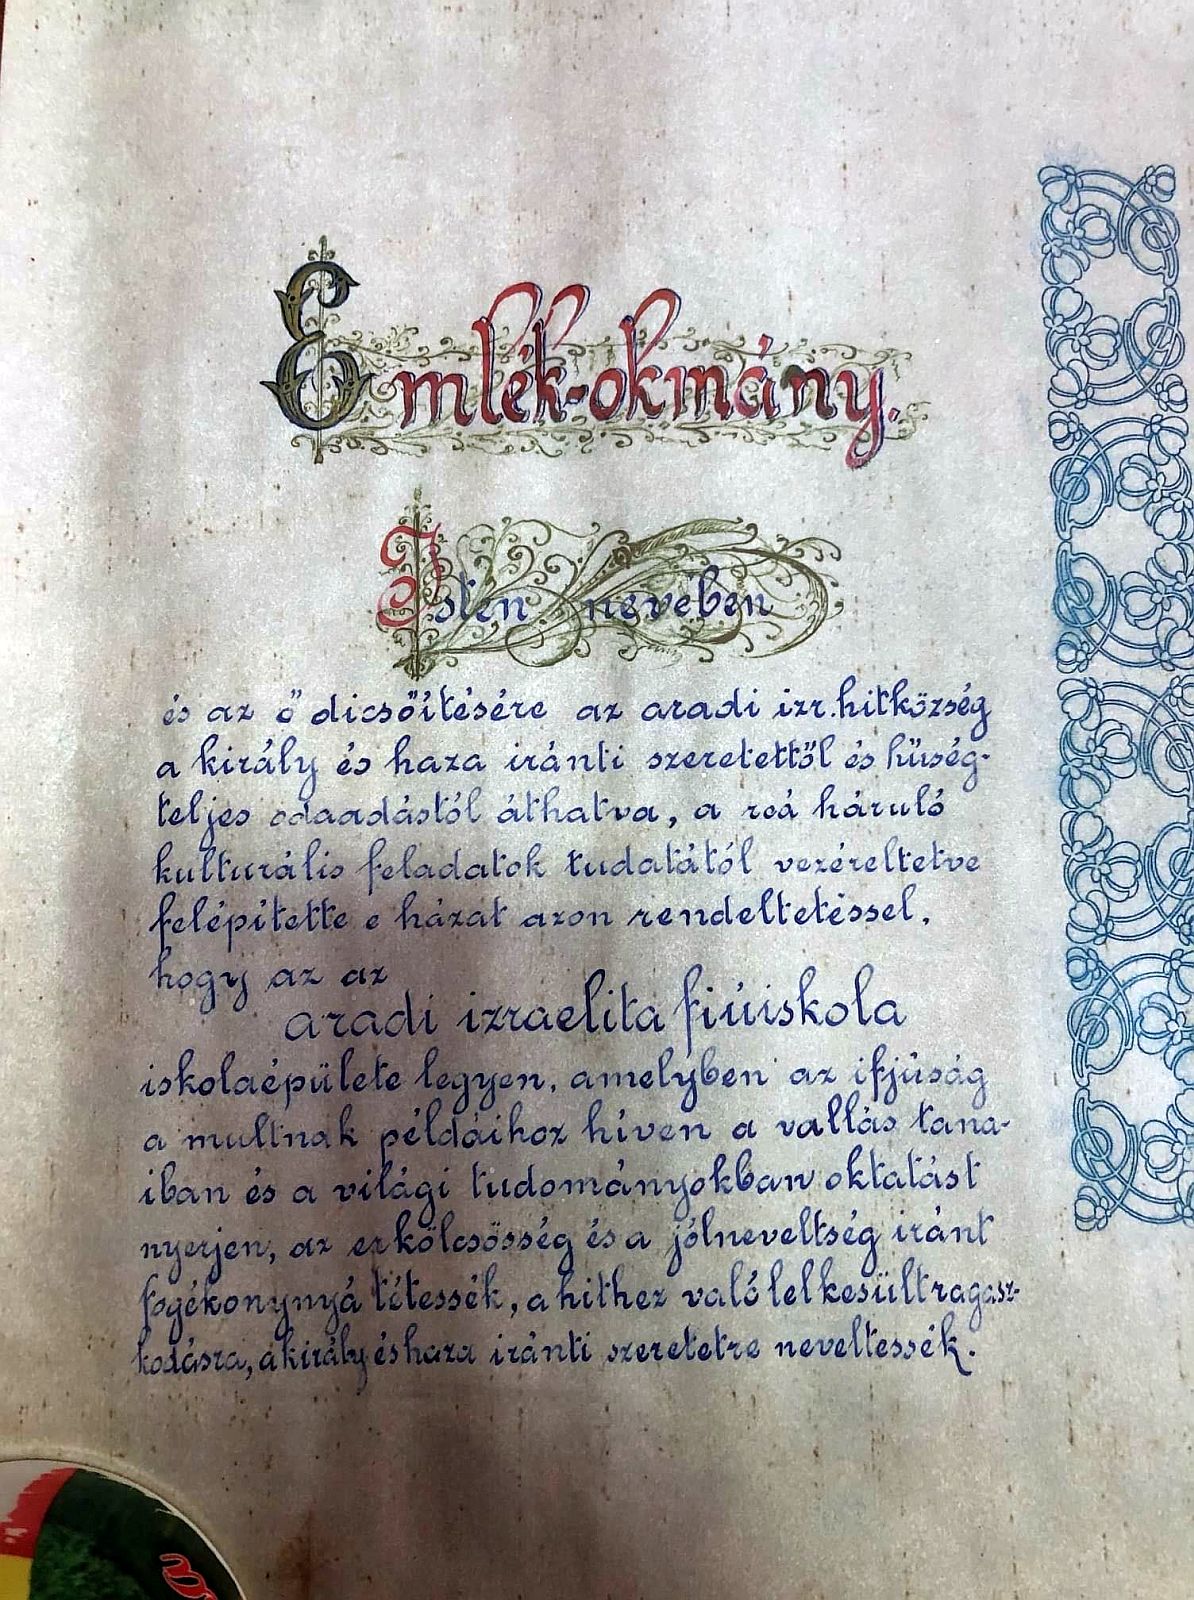 Emlék-okmány.
Isten nevében
és az ő dicsőítésére az aradi izr. hitközség
a király és haza iránti szeretettől és hűség-
teljes odaadástól áthatva, a reá háruló
kulturális feladatok tudatától vezéreltetve
felépítette e házat azon rendeltetéssel,
hogy az az
aradi izraelita fiúiskola
iskolaépülete legyen, amelyben az ifjúság
a multnak példáihoz híven a vallás tana-
iban és a világi tudományokban oktatást
nyerjen, az erkölcsösség és a jólneveltség iránt
fogékonynyá tétessék, a hithez való lelkesült ragasz-
kodásra, a király és haza iránti szeretetre neveltessék.